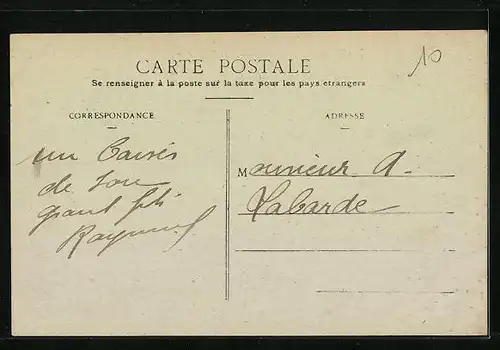 10
CARTE POSTALE
Se renseigner à la poste sur la taxe pour les pays étrangers
CORRESPONDANCE
ADRESSE
un Baisés
de ton
grant fils
Raymond
Monsieur A.
Labarde